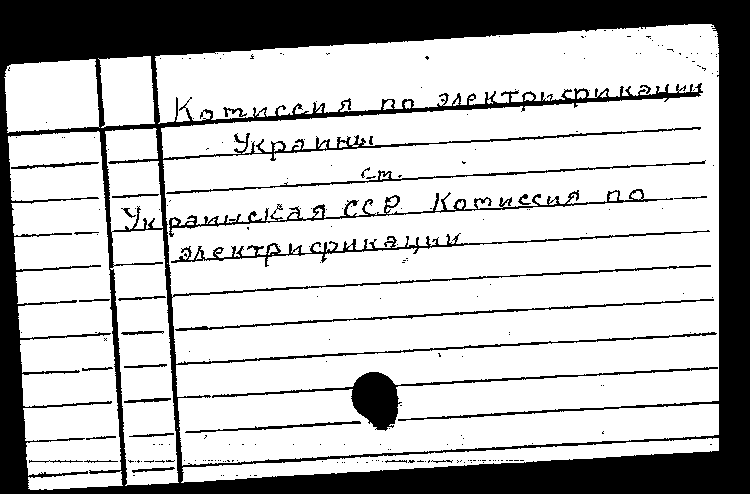 Комиссия по электрификации
Украины
ст.
Украинская ССР. Комиссия по
электрификации